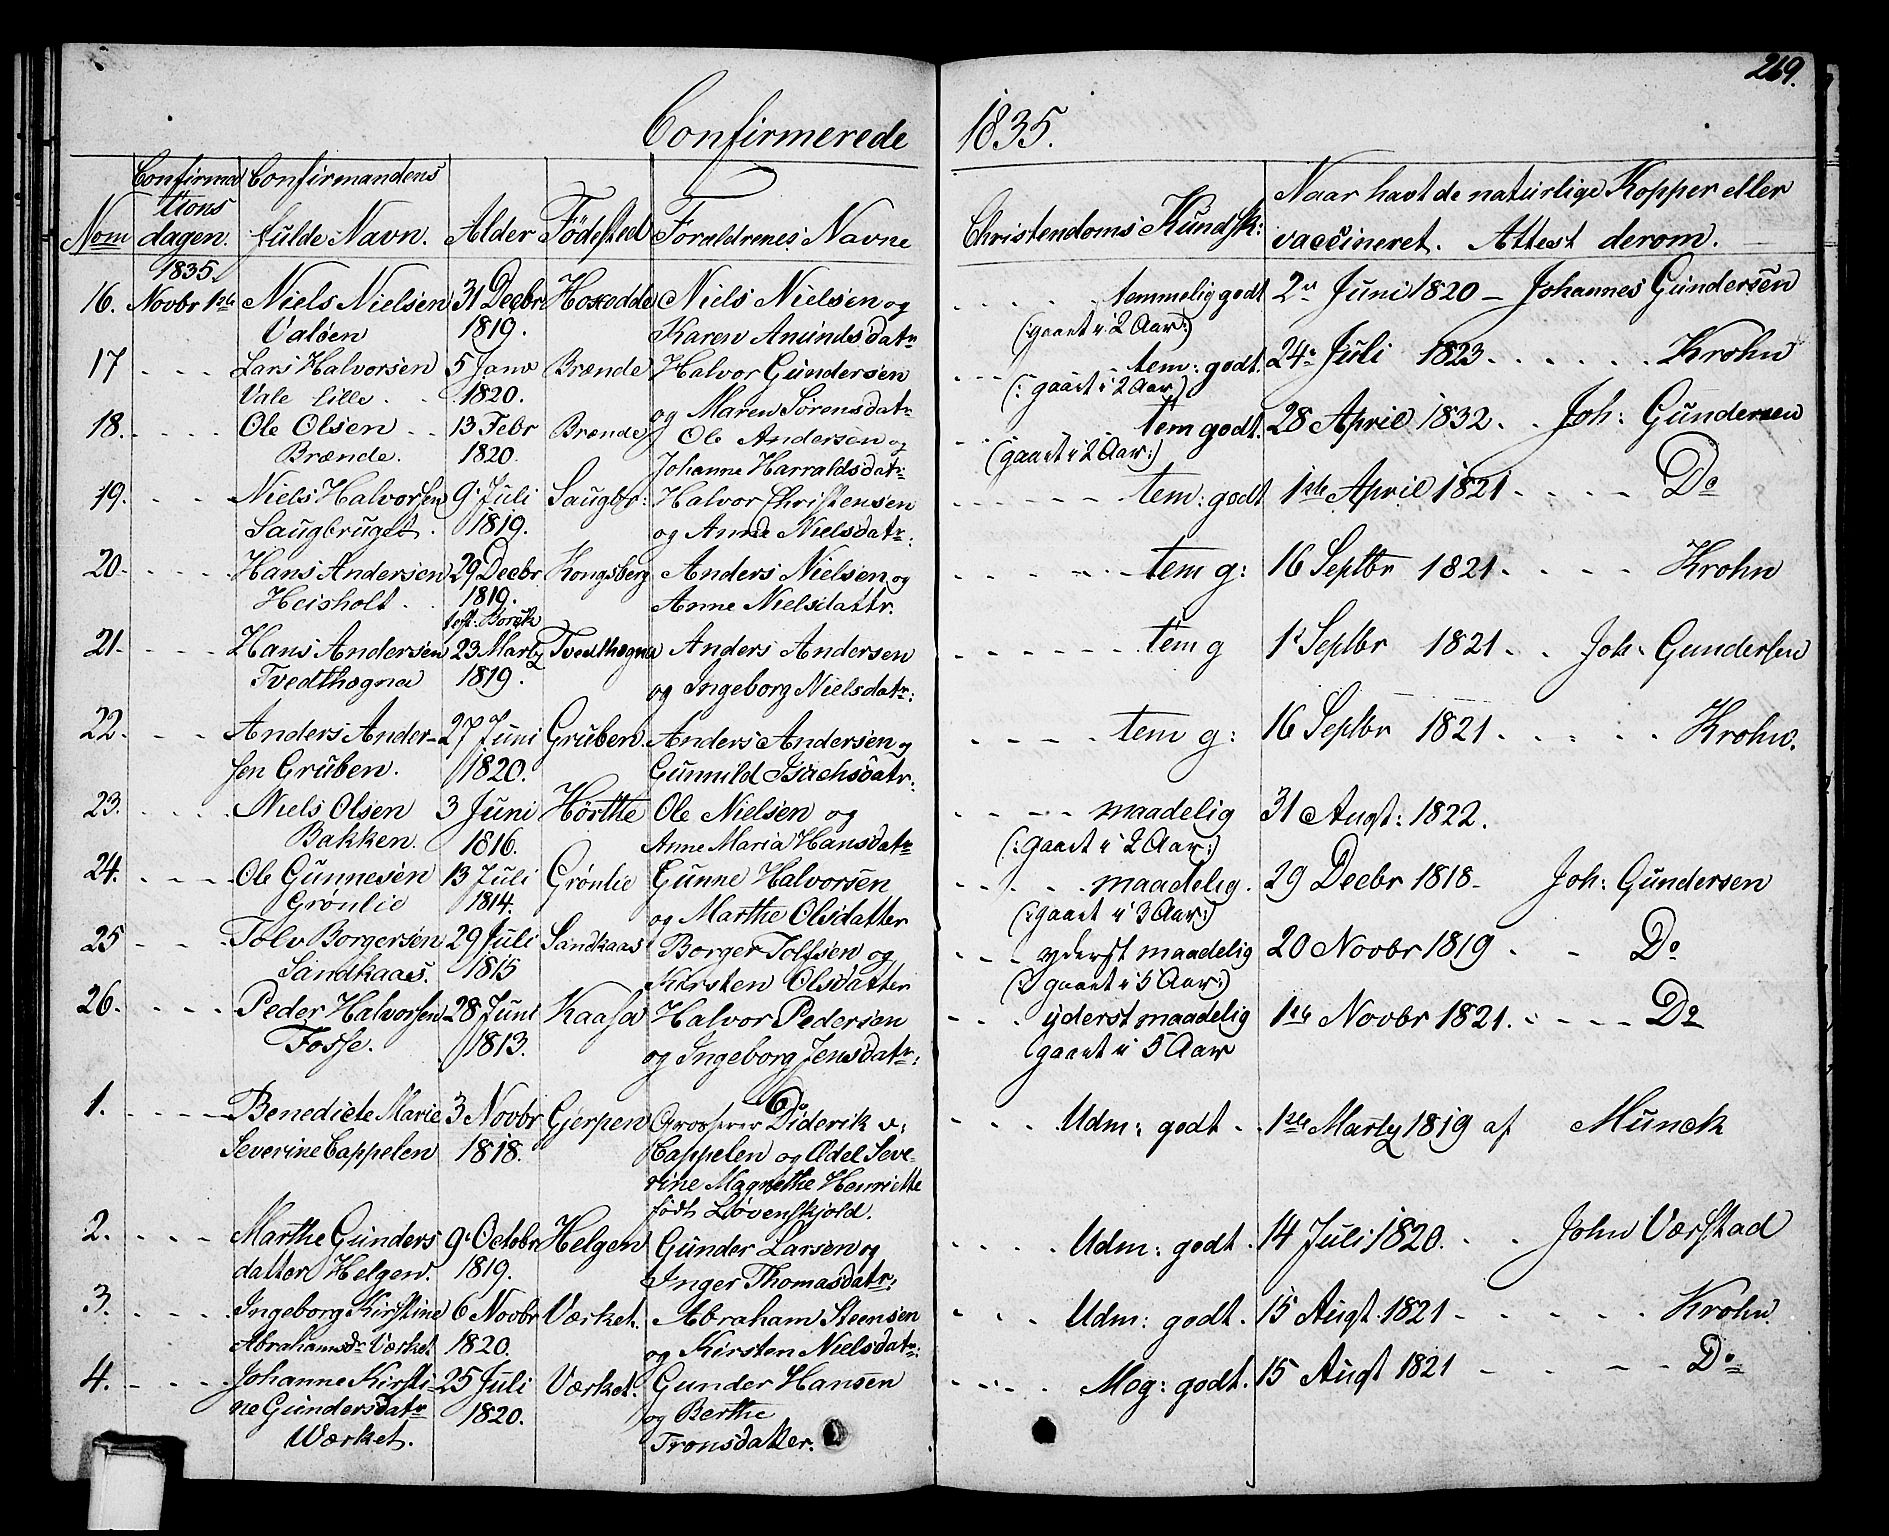 269.
Confirmerede 1835.
Nom
Confirma
tions
dagen.
Confirmandens
fulde Navn.
Alder
Födested
Foraldrenes Navne
Christendoms Kundsk:
Naar havt de naturlige Kopper eller
vaccineret. Attest derom.
1835.
16. Novbr 1ste Niels Nielsen 31 Decbr Niels Nielsen og temmelig godt 2en Juni 1820 – Johannes Gundersen
Valöen 1819. Karen Anundsdatr (:gaaet i 2 Aar:)
17 Lars Halvorsen 5 Janv Brænde Halvor Gundersen tem: godt. 24e Juli 1823. Krohn
Vale lille 1820. og Maren Sörensdatr (: gaaet i 2 Aar)
18. Ole Olsen 13 Febr Brænde Ole Andersen og tem godt. 28 April 1832. Joh: Gundersen
Brænde. 1820. Johanne Harraldsdatr: (gaaet i 2 Aar:)
19. Niels Halvorsen 9e Juli Saugbr: Halvor Christensen tem: godt 1ste April 1821 Do
Saugbruget. 1819. og Anne Nielsdatr:
20. Hans Andersen 29 Decbr Kongsberg Anders Nielsen og tem g: 16 Septbr 1821. Krohn
Heisholt. 1819. Anne Nielsdattr.
21. Hans Andersen 23 Marty Tvedthogna Anders Andersen tem g 1s Septbr 1821. Joh. Gundersen
Tvedthogna 1819. og Ingeborg Nielsdatr:
22. Anders Ander- 27 Juni Gruben. Anders Andersen og tem g: 16 Septbr 1821. Krohn.
sen Gruben. 1820. Gunnild Isachsdatr.
23. Niels Olsen 3 Juni Hörthe Ole Nielsen og maadelig 31 Augt: 1822.
Bakken. 1816. Anne Maria Hansdatr (:gaaet i 2 Aar:)
24. Ole Gunnesen 13 Juli Grönlie Gunne Halvorsen maadelig. 29 Decbr 1818. Joh: Gundersen
Grönlie 1814. og Marthe Olsdatter (:gaaet i 3 Aar:)
25 Tolv Borgersen 29 Juli Sandkaas Borger Tolfsen og yderst maadelig 20 Novbr 1819. Do
Sandkaas. 1815 Kirsten Olsdatter (: gaaet i 5 Aar:)
26. Peder Halvorsen 28 Juni Kaasa Halvor Pedersen yderst maadelig 1ste Novbr 1821. Do
Fosse. 1813. og Ingeborg Jensdatr: (gaaet i 5 Aar
1. Benedicte Marie 3 Novbr Gjerpen Grosserer Diderik v: Udm: godt. 1ste Marty 1819 af Munck
Severine Cappelen 1818. Cappelen og Ædel Seve-
rine Magrethe Henriette
födt Lövenskjold.
2. Marthe Gunders 9e Octobr Helgen Gunder Larsen og Udm: godt. 14 Juli 1820. John Værstad
datter Helgen. 1819. Inger Thomasdatr:
3. Ingeborg Kirstine 6 Novbr Værket. Abraham Steensen Udm: godt. 15 Augt. 1821 Krohn
Abrahamsdr Værket 1820. og Kirsten Nielsdatr:
4. Johanne Kirsti- 25 Juli Værket. Gunder Hansen Meg: godt. 15 Augt 1821 Do
ne Gundersdatr 1820. og Berthe
Værket. Tronsdatter.